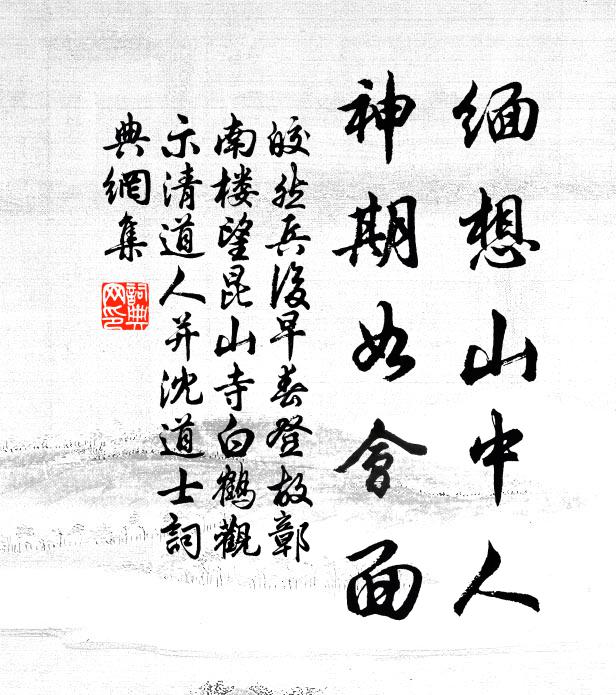 緬想山中人
神期如會面
皎然兵後早春登故鄣
南楼望昆山寺白鶴觀
示清道人并沈道士詞
典網集
詞典
网印